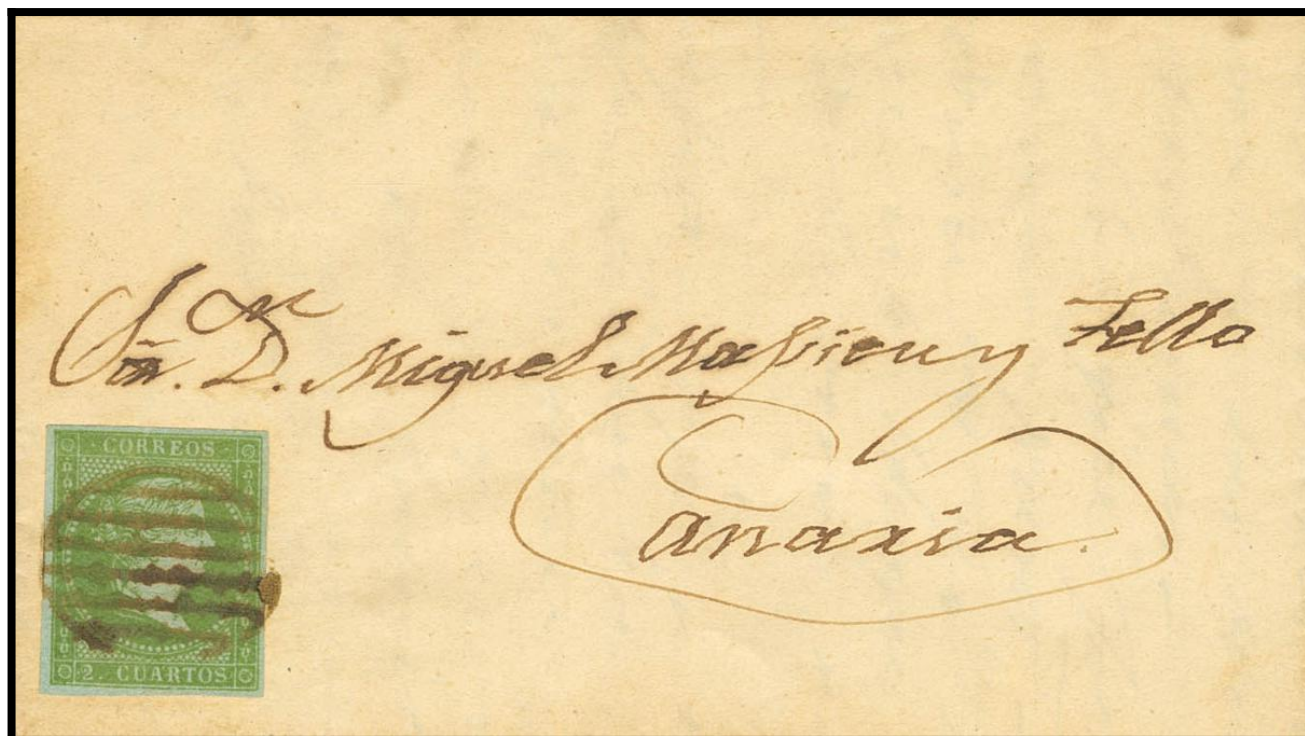 Sr. Dn. Miguel Massieu y Tello
Canaria.
CORREOS
2. CUARTOS